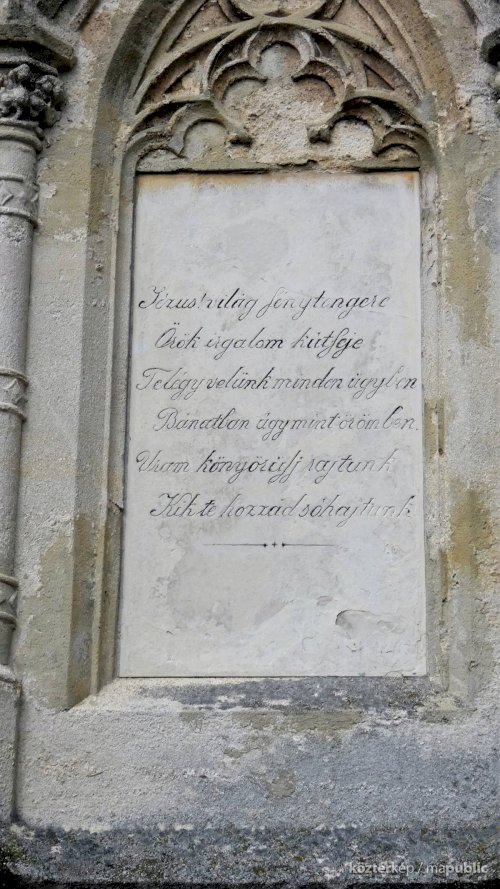 Jézus! világ fénytengere
Örök irgalom kútfeje
Te légy velünk minden ügyben
Bánatban úgy mint örömben.
Uram könyörülj rajtunk
Kik te hozzád sóhajtunk
köztérkép / mapublic